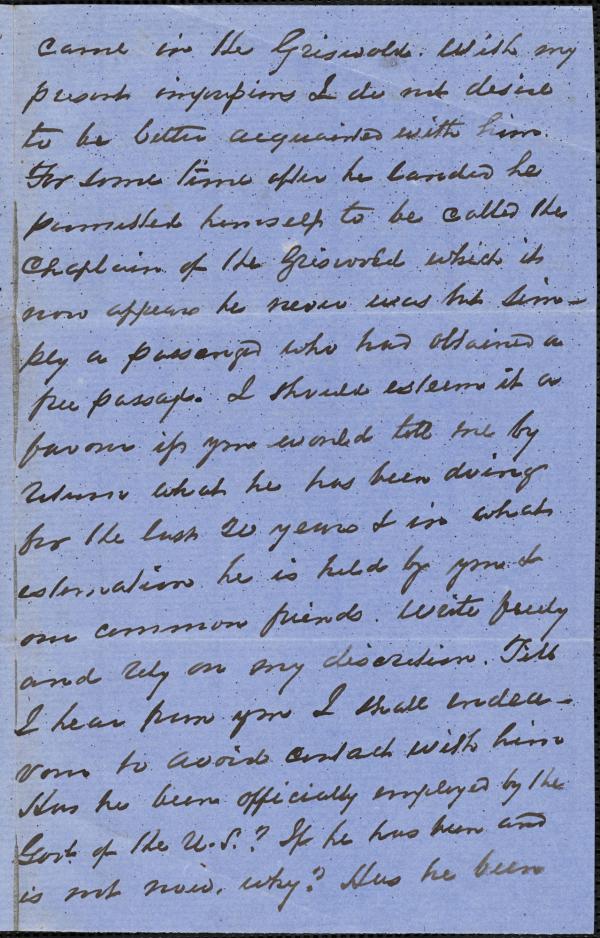 came in the Griswold. With my
present impressions I do not desire
to be better acquainted with him.
For some time after he landed he
permitted himself to be called the
Chaplain of the Griswold which it
now appears he never was but sim-
ply a passenger who had obtained a
free passage. I should esteem it a
favour if you would tell me by
return what he has been doing
for the last 20 years & in what
estimation he is held by you &
our common friends. Write freely
and rely on my discretion. Till
I hear from you I shall endea-
vour to avoid contact with him
Has he been officially employed by the
Govt. of the U.S.? If he has been and
is not now, why? Has he been